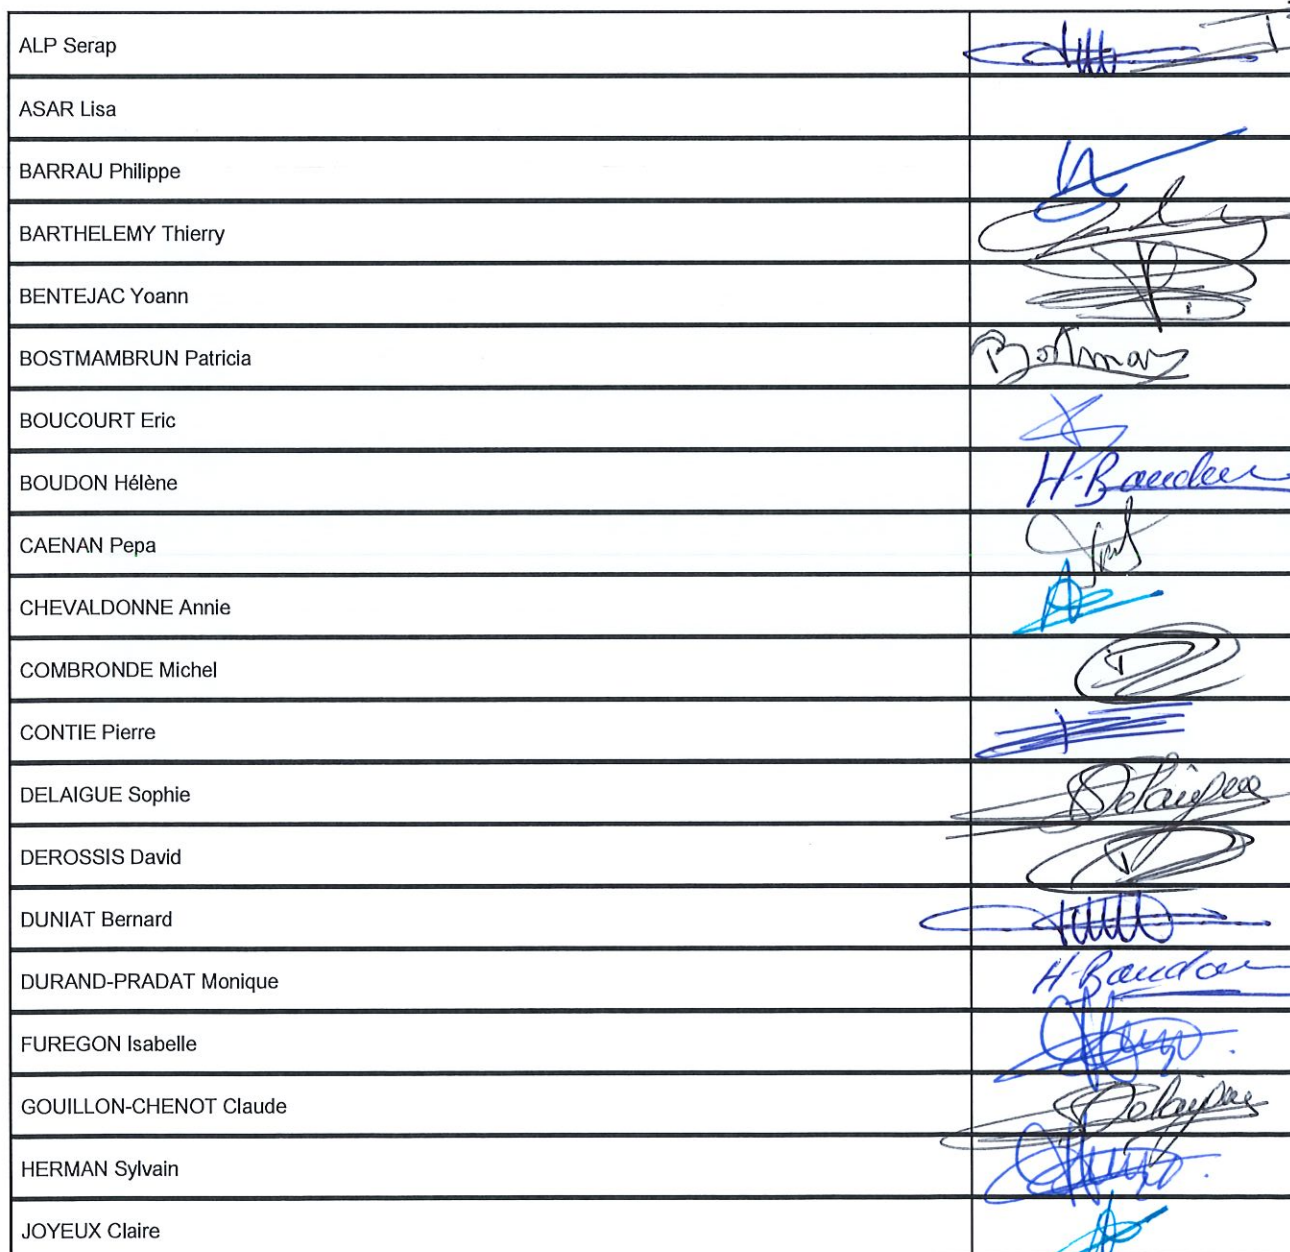 ALP Serap
ASAR Lisa
BARRAU Philippe
BARTHELEMY Thierry
BENTEJAC Yoann
BOSTMAMBRUN Patricia
Bostmam
BOUCOURT Eric
BOUDON Hélène
H-Boudon
CAENAN Pepa
CHEVALDONNE Annie
COMBRONDE Michel
CONTIE Pierre
DELAIGUE Sophie
Delaigue
DEROSSIS David
DUNIAT Bernard
DURAND-PRADAT Monique
H-Boudon
FUREGON Isabelle
GOUILLON-CHENOT Claude
Delaigue
HERMAN Sylvain
JOYEUX Claire